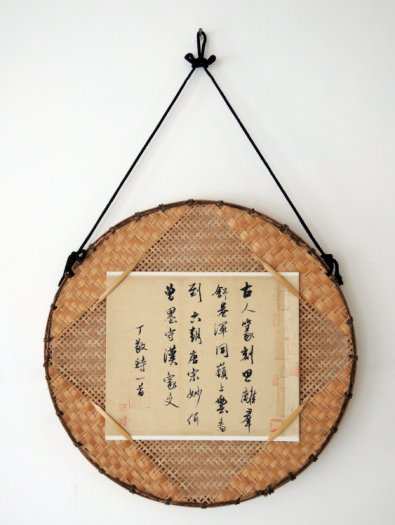 古人篆刻思離羣
舒卷渾同嶺上雲看
到六朝唐宋妙何
曾墨守漢家文
丁敬詩一首